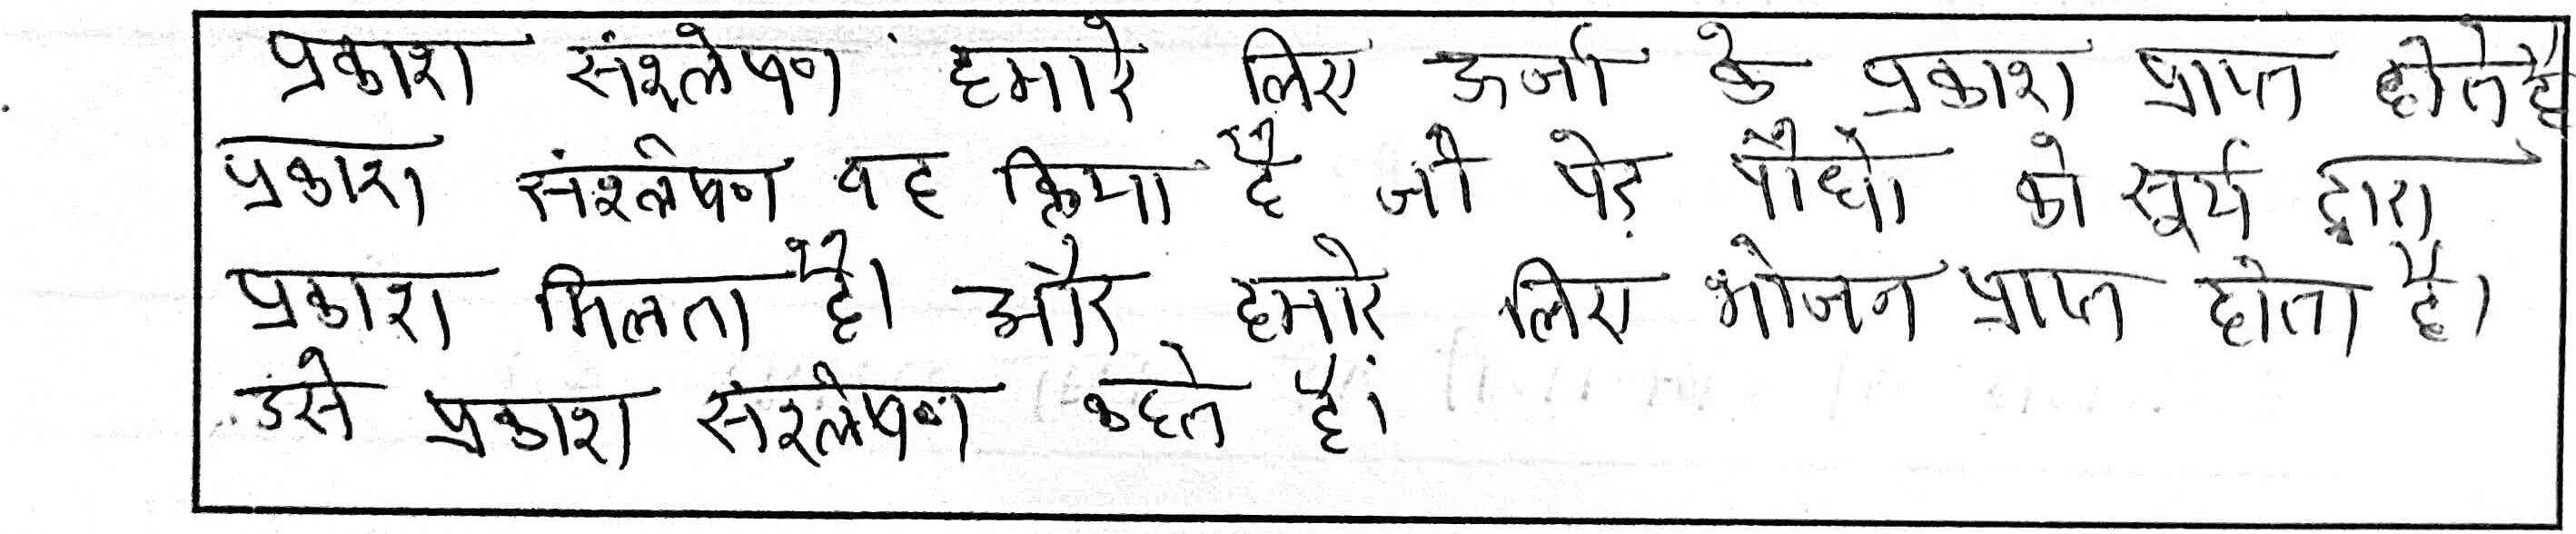 प्रकाश संश्लेषण हमारे लिए ऊर्जा के प्रकाश प्राप्त होते है
प्रकाश संश्लेषण वह क्रिया है जो पेड़ पौधो को सूर्य द्वारा
प्रकाश मिलता है। और हमारे लिए भोजन प्राप्त होता है।
उसे प्रकाश संश्लेषण कहते हैं।